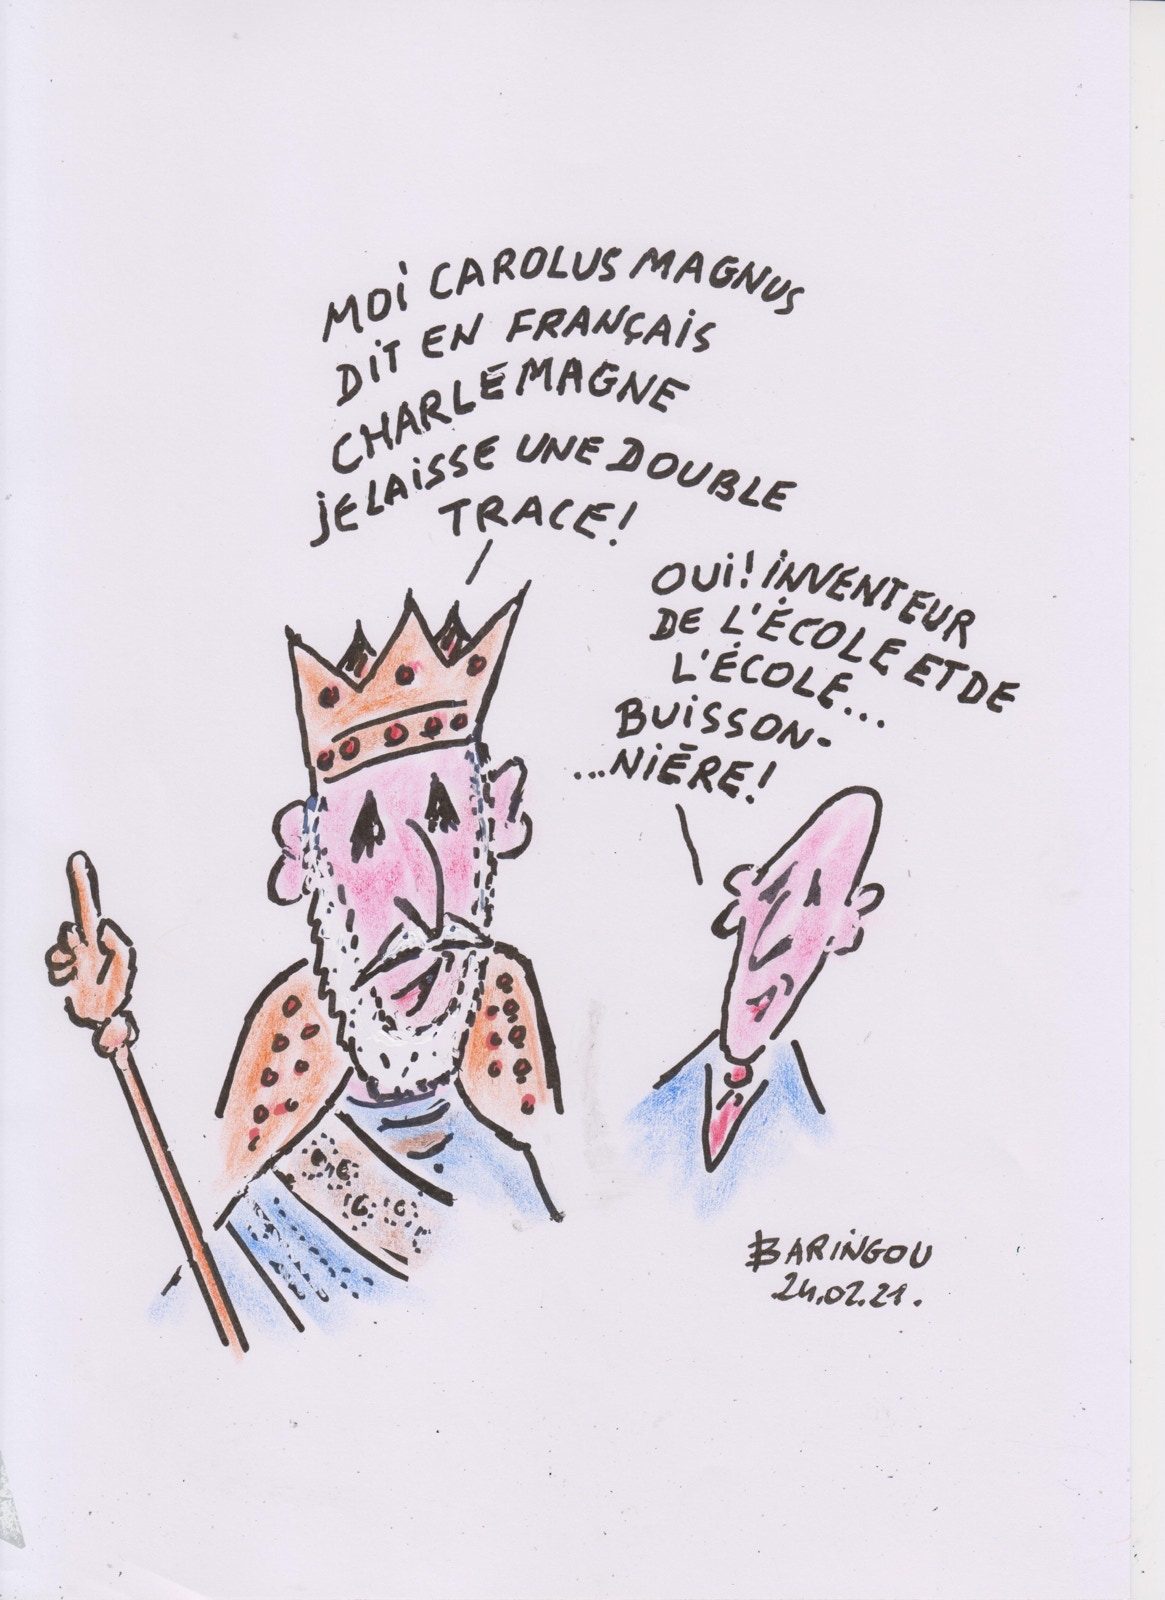 MOi CAROLUS MAGNUS
DiT EN FRANÇAiS
CHARLEMAGNE
jE LAiSSE UNE DOUBLE
TRACE!
OUi! iNVENTEUR
DE L'ÉCOLE ET DE
L'ÉCOLE...
BUiSSON-
...NiÈRE!
BARiNGOU
24.02.21.